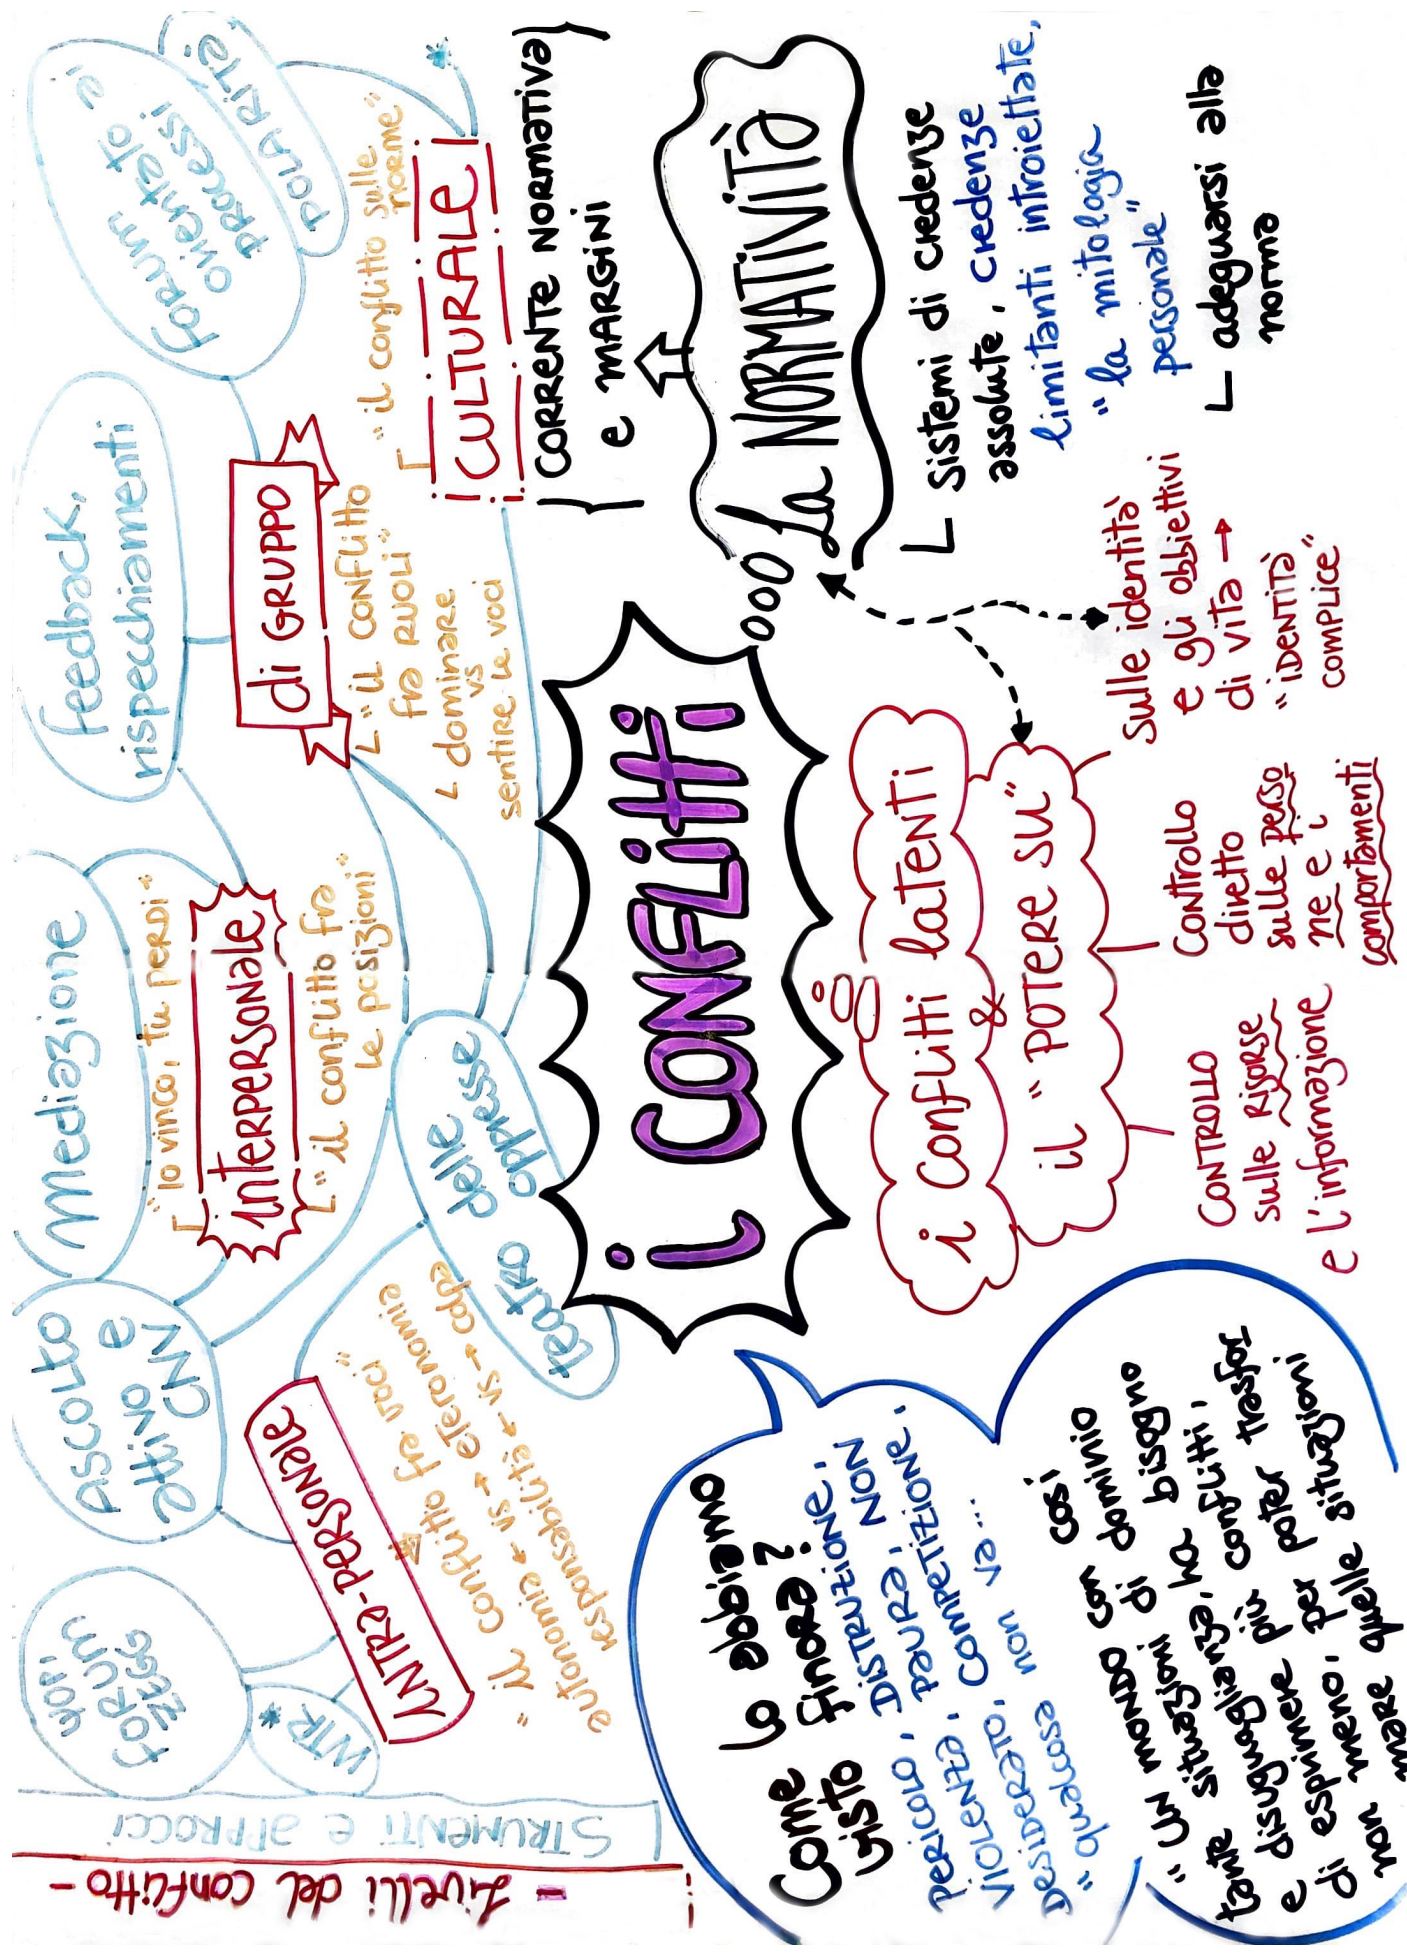 - Livelli del conflitto -
STRUMENTI e APPROCCI
WOP,
FORUM
ZEGG
WTR *
ASCOLTO
attivo e
CNV
mediazione
feedback,
rispecchiamenti
FORUM
orientato ai
PROCESSI
POLARITà
*
INTRA-PERSONALE
"il conflitto fra voci"
autonomia ← vs → eteronomia
responsabilità ← vs → colpa
"Io vinco, tu perdi"
interpersonale
"il conflitto fra
le posizioni"
di GRUPPO
"il conflitto
fra RUOLI"
dominare
vs
sentire le voci
"il conflitto sulle
norme"
CULTURALE
CORRENTE NORMATIVA
e MARGINI
teatro delle
oppresse
i CONFLitti
La NORMATIVITà
sistemi di credenze
assolute, credenze
limitanti introiettate,
"la mitologia
personale"
adeguarsi alla
norma
i conflitti latenti
&
il "POTERE SU"
CONTROLLO
sulle RISORSE
e l'informazione
CONTROLLO
diretto
sulle perso
ne e i
comportamenti
sulle identità
e gli obbiettivi
di vita →
"iDENTITà
complice"
Come lo abbiamo
visto finora?
PERICOLO, DISTRUZIONE,
VIOLENZA, PAURA, NON
DESIDERATO, COMPETIZIONE.
"qualcosa non va...
"UN MONDO con così
tante situazioni di dominio
e disuguaglianza, ha bisogno
di esprimere più conflitti,
non meno, per poter trasfor
mare quelle situazioni